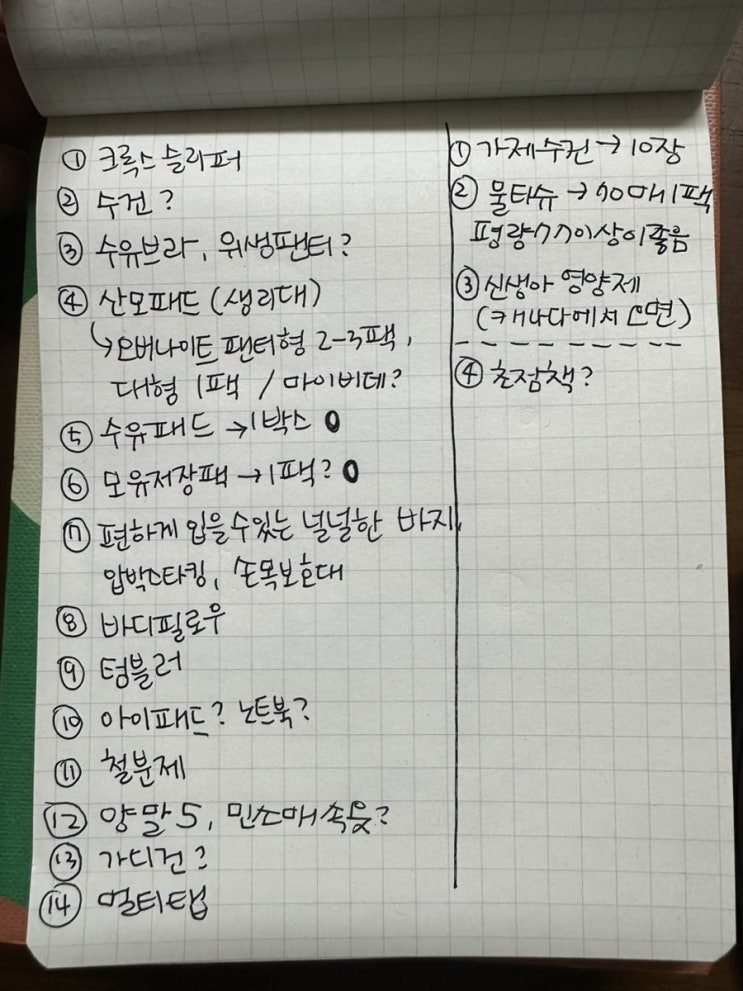 ① 크록스 슬리퍼
② 수건?
③ 수유브라, 위생팬티?
④ 산모패드 (생리대)
↳오버나이트 팬티형 2-3팩,
대형 1팩 / 마이비데?
⑤ 수유패드 → 1박스 O
⑥ 모유저장팩 → 1팩? O
⑦ 편하게 입을수있는 널널한 바지,
압박스타킹, 손목보호대
⑧ 바디필로우
⑨ 텀블러
⑩ 아이패드? 노트북?
⑪ 철분제
⑫ 양말5, 민소매속옷?
⑬ 가디건?
⑭ 멀티탭
① 가제수건 → 10장
② 물티슈 → 70매1팩
평량77이상이좋음
③ 신생아 영양제
(캐나다에서 오면)
④ 초점책?